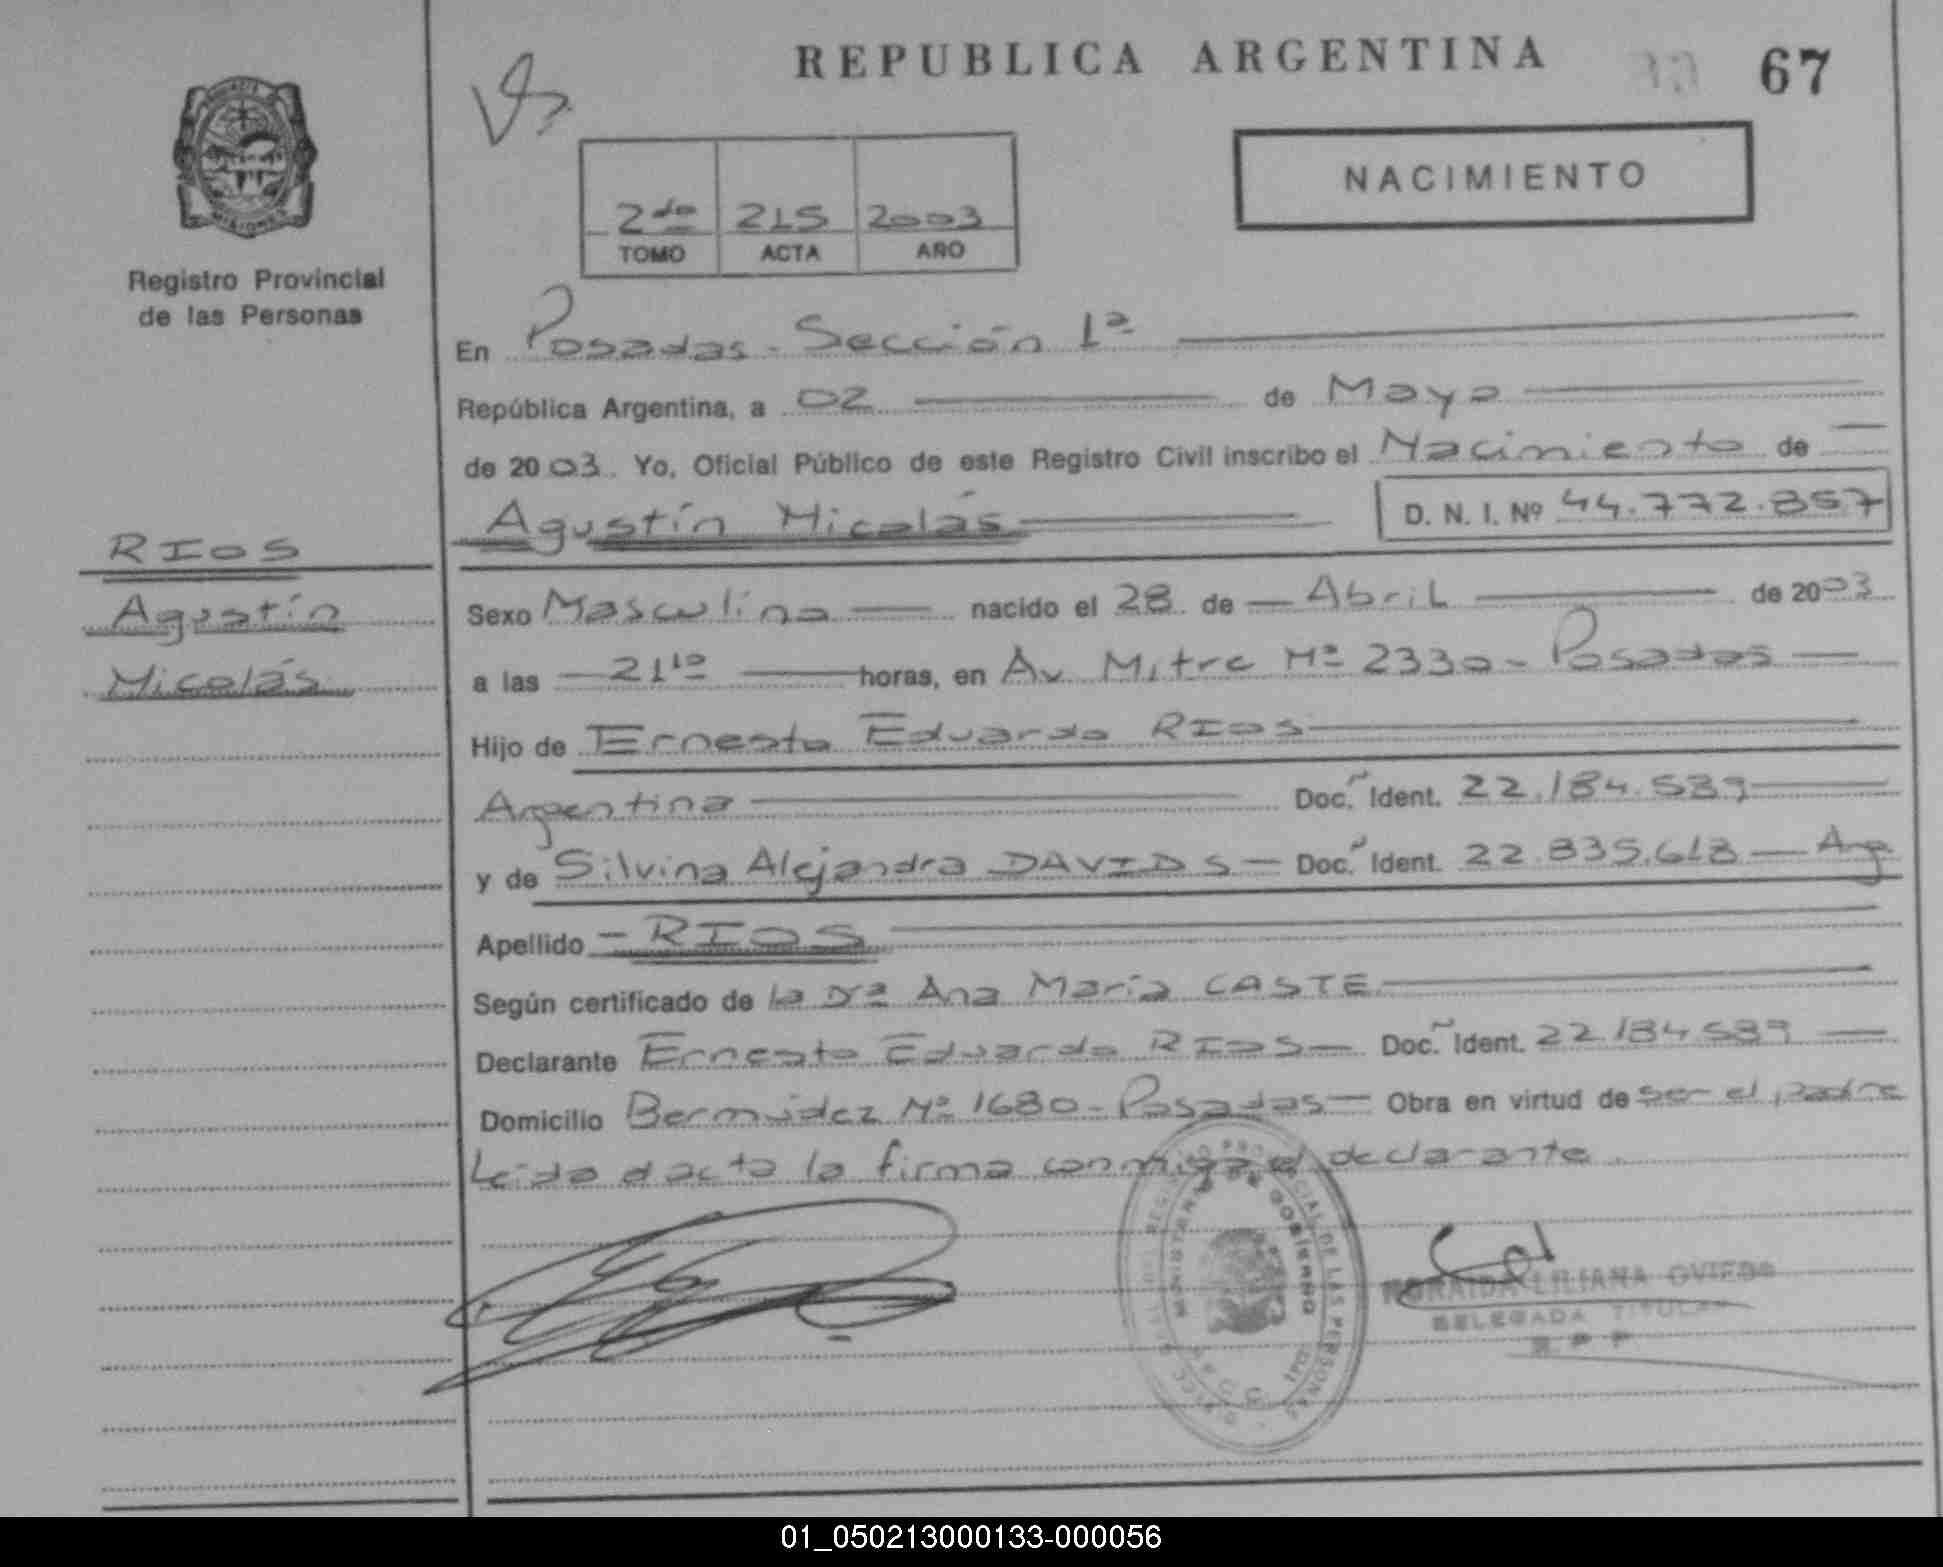 REPUBLICA ARGENTINA
67
NACIMIENTO
2do 215 2003
TOMO ACTA AÑO
Registro Provincial
de las Personas
En Posadas - Sección 1ª
República Argentina, a 02 de Mayo
de 2003. Yo, Oficial Público de este Registro Civil inscribo el Nacimiento de
Agustín Nicolás D. N. I. Nº 44.772.857
RIOS
Agustín
Nicolás
Sexo Masculino nacido el 28 de Abril de 2003
a las 21 10 horas, en Av Mitre Nº 2330 - Posadas
Hijo de Ernesto Eduardo RIOS
Argentina Doc. Ident. 22.184.589
y de Silvina Alejandra DAVIDS - Doc. Ident. 22.835.618 - Arg
Apellido - RIOS
Según certificado de la Drª Ana María CASTE
Declarante Ernesto Eduardo RIOS - Doc. Ident. 22.184.589
Domicilio Bermúdez Nº 1680 - Posadas - Obra en virtud de ser el padre
Leida el acta la firma conmigo el declarante.
REGISTRO PROVINCIAL DE LAS PERSONAS
MINISTERIO DE GOBIERNO
LILIANA OVIEDO
DELEGADA TITULAR
R. P. P.
01_050213000133-000056